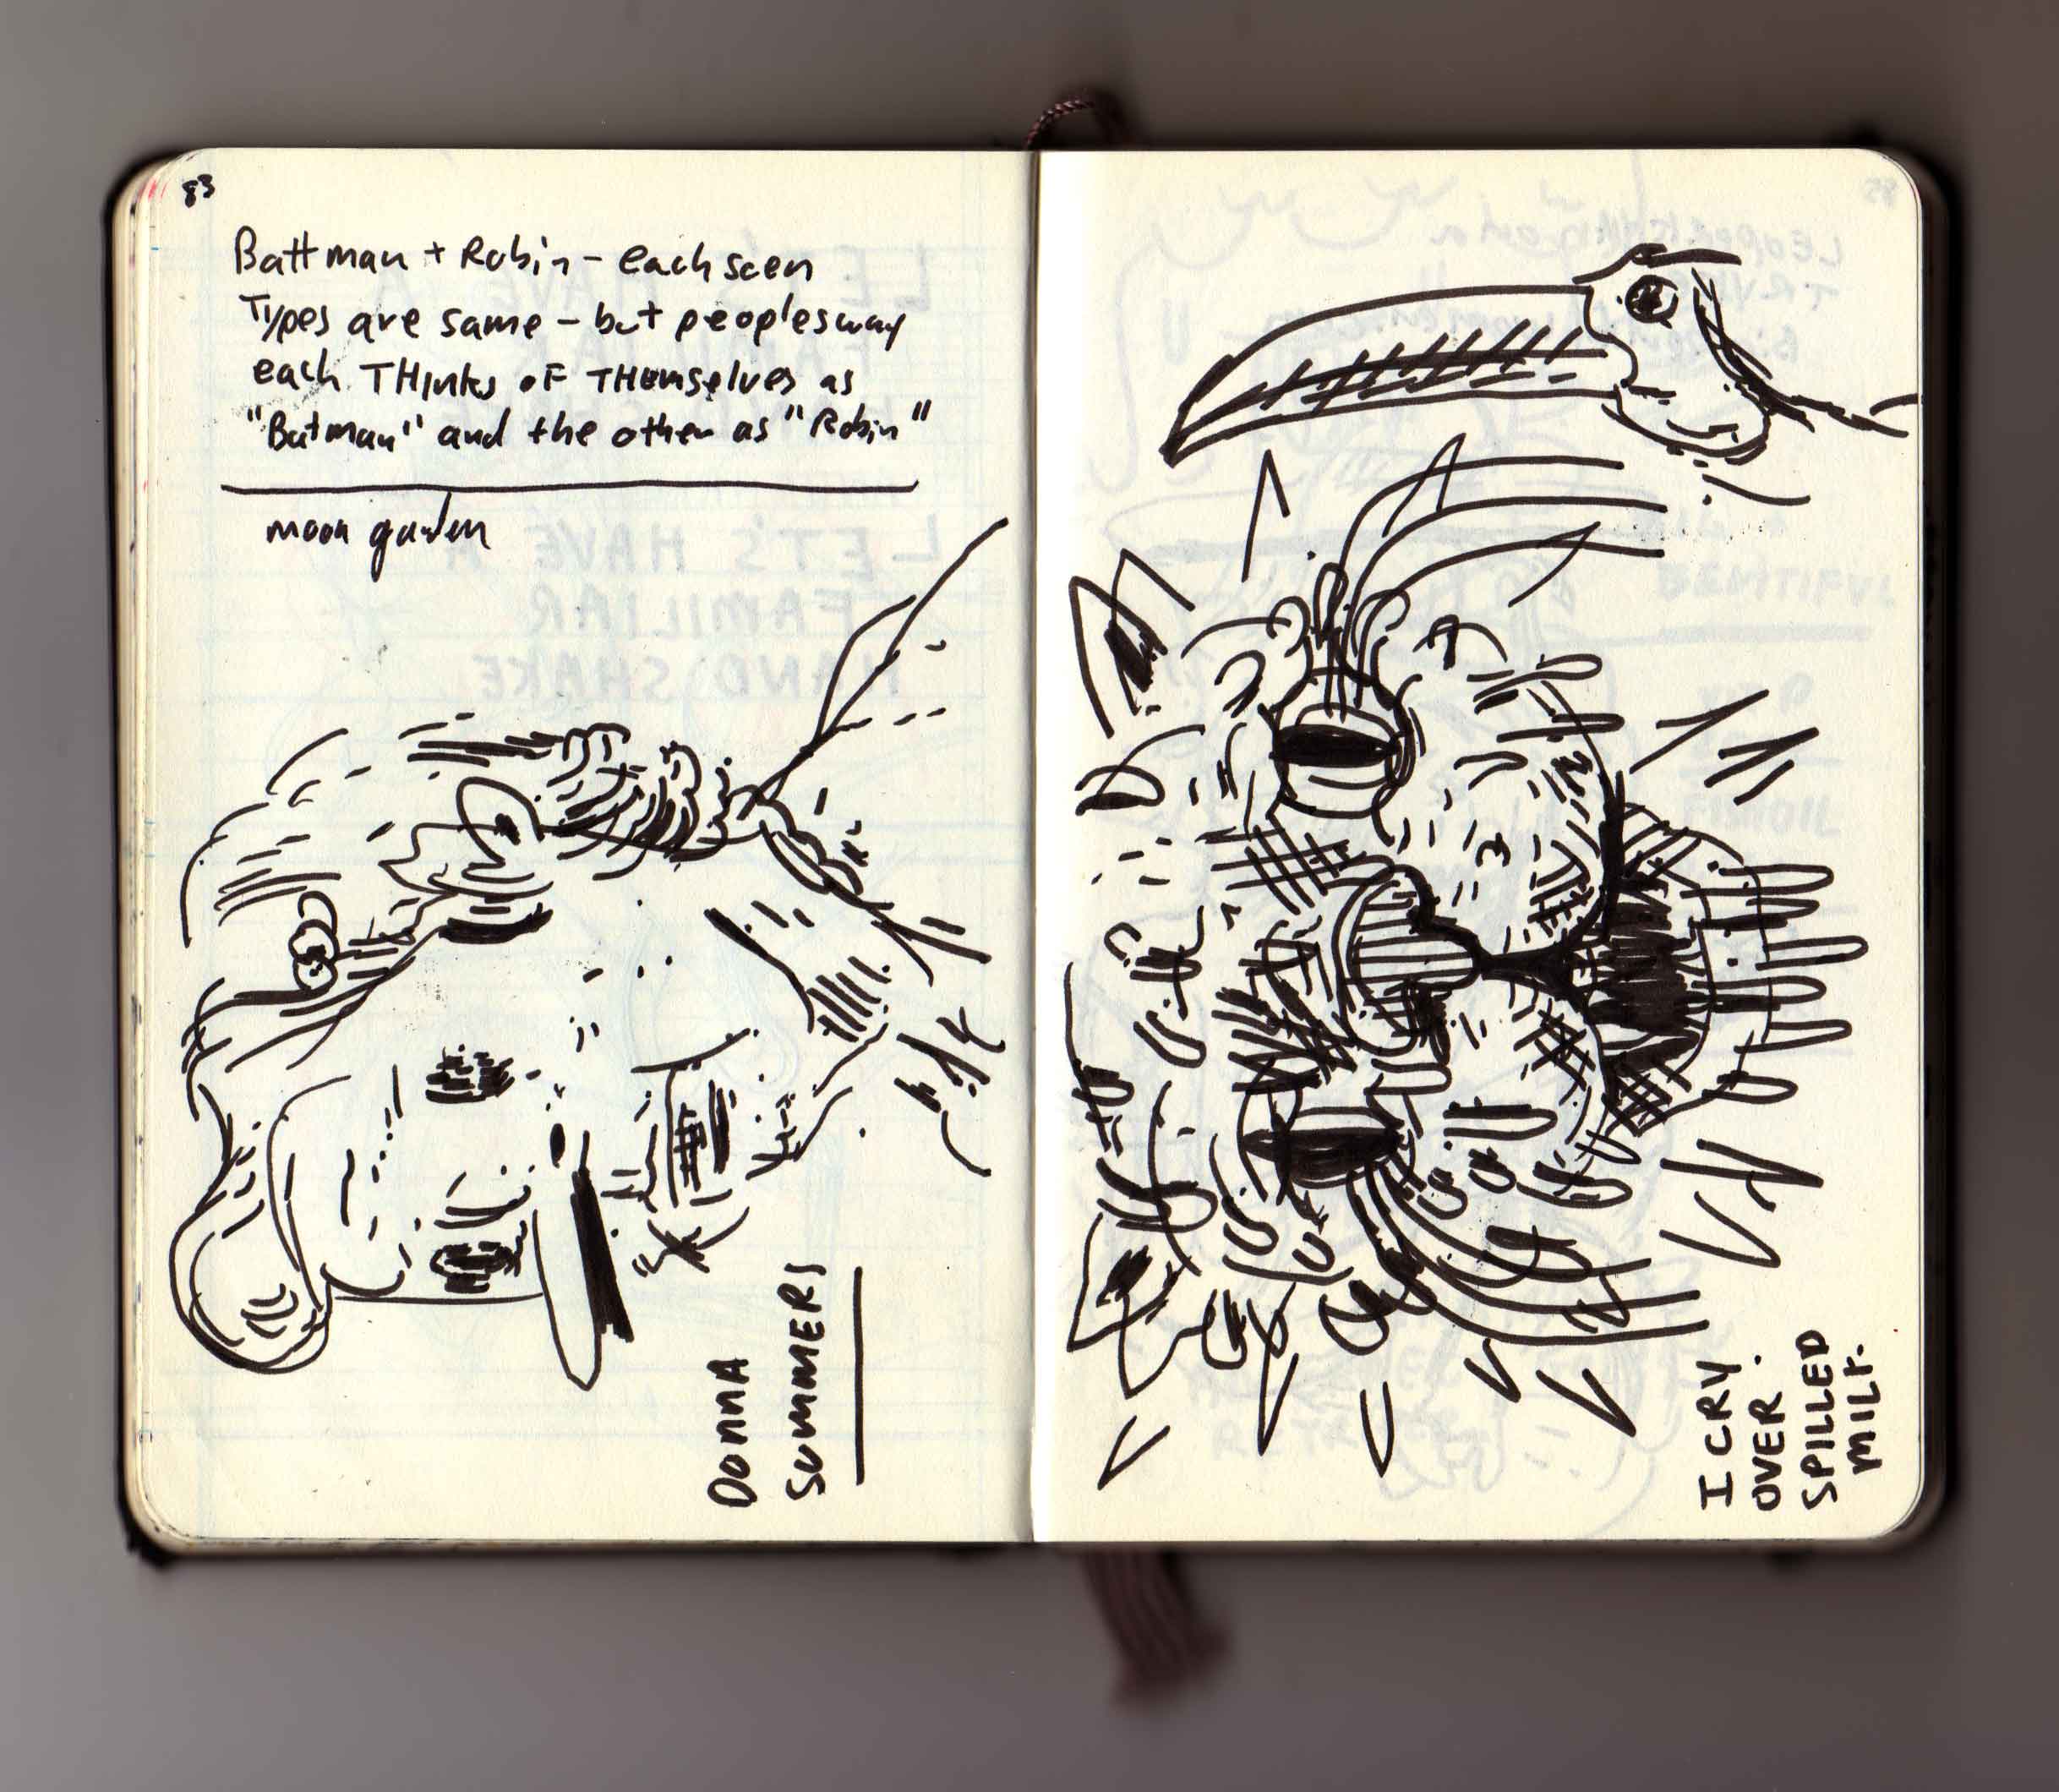 83
Battman + Robin - each scen
Types are same - but peoples way
each THinks oF THemselves as
"Batman" and the other as "Robin"
moon garden
DONNA
SUMMERS
LET'S HAVE A
FAMILIAR
HAND SHAKE
I CRY
OVER
SPILLED
MILK.
85
BEAUTIFUL